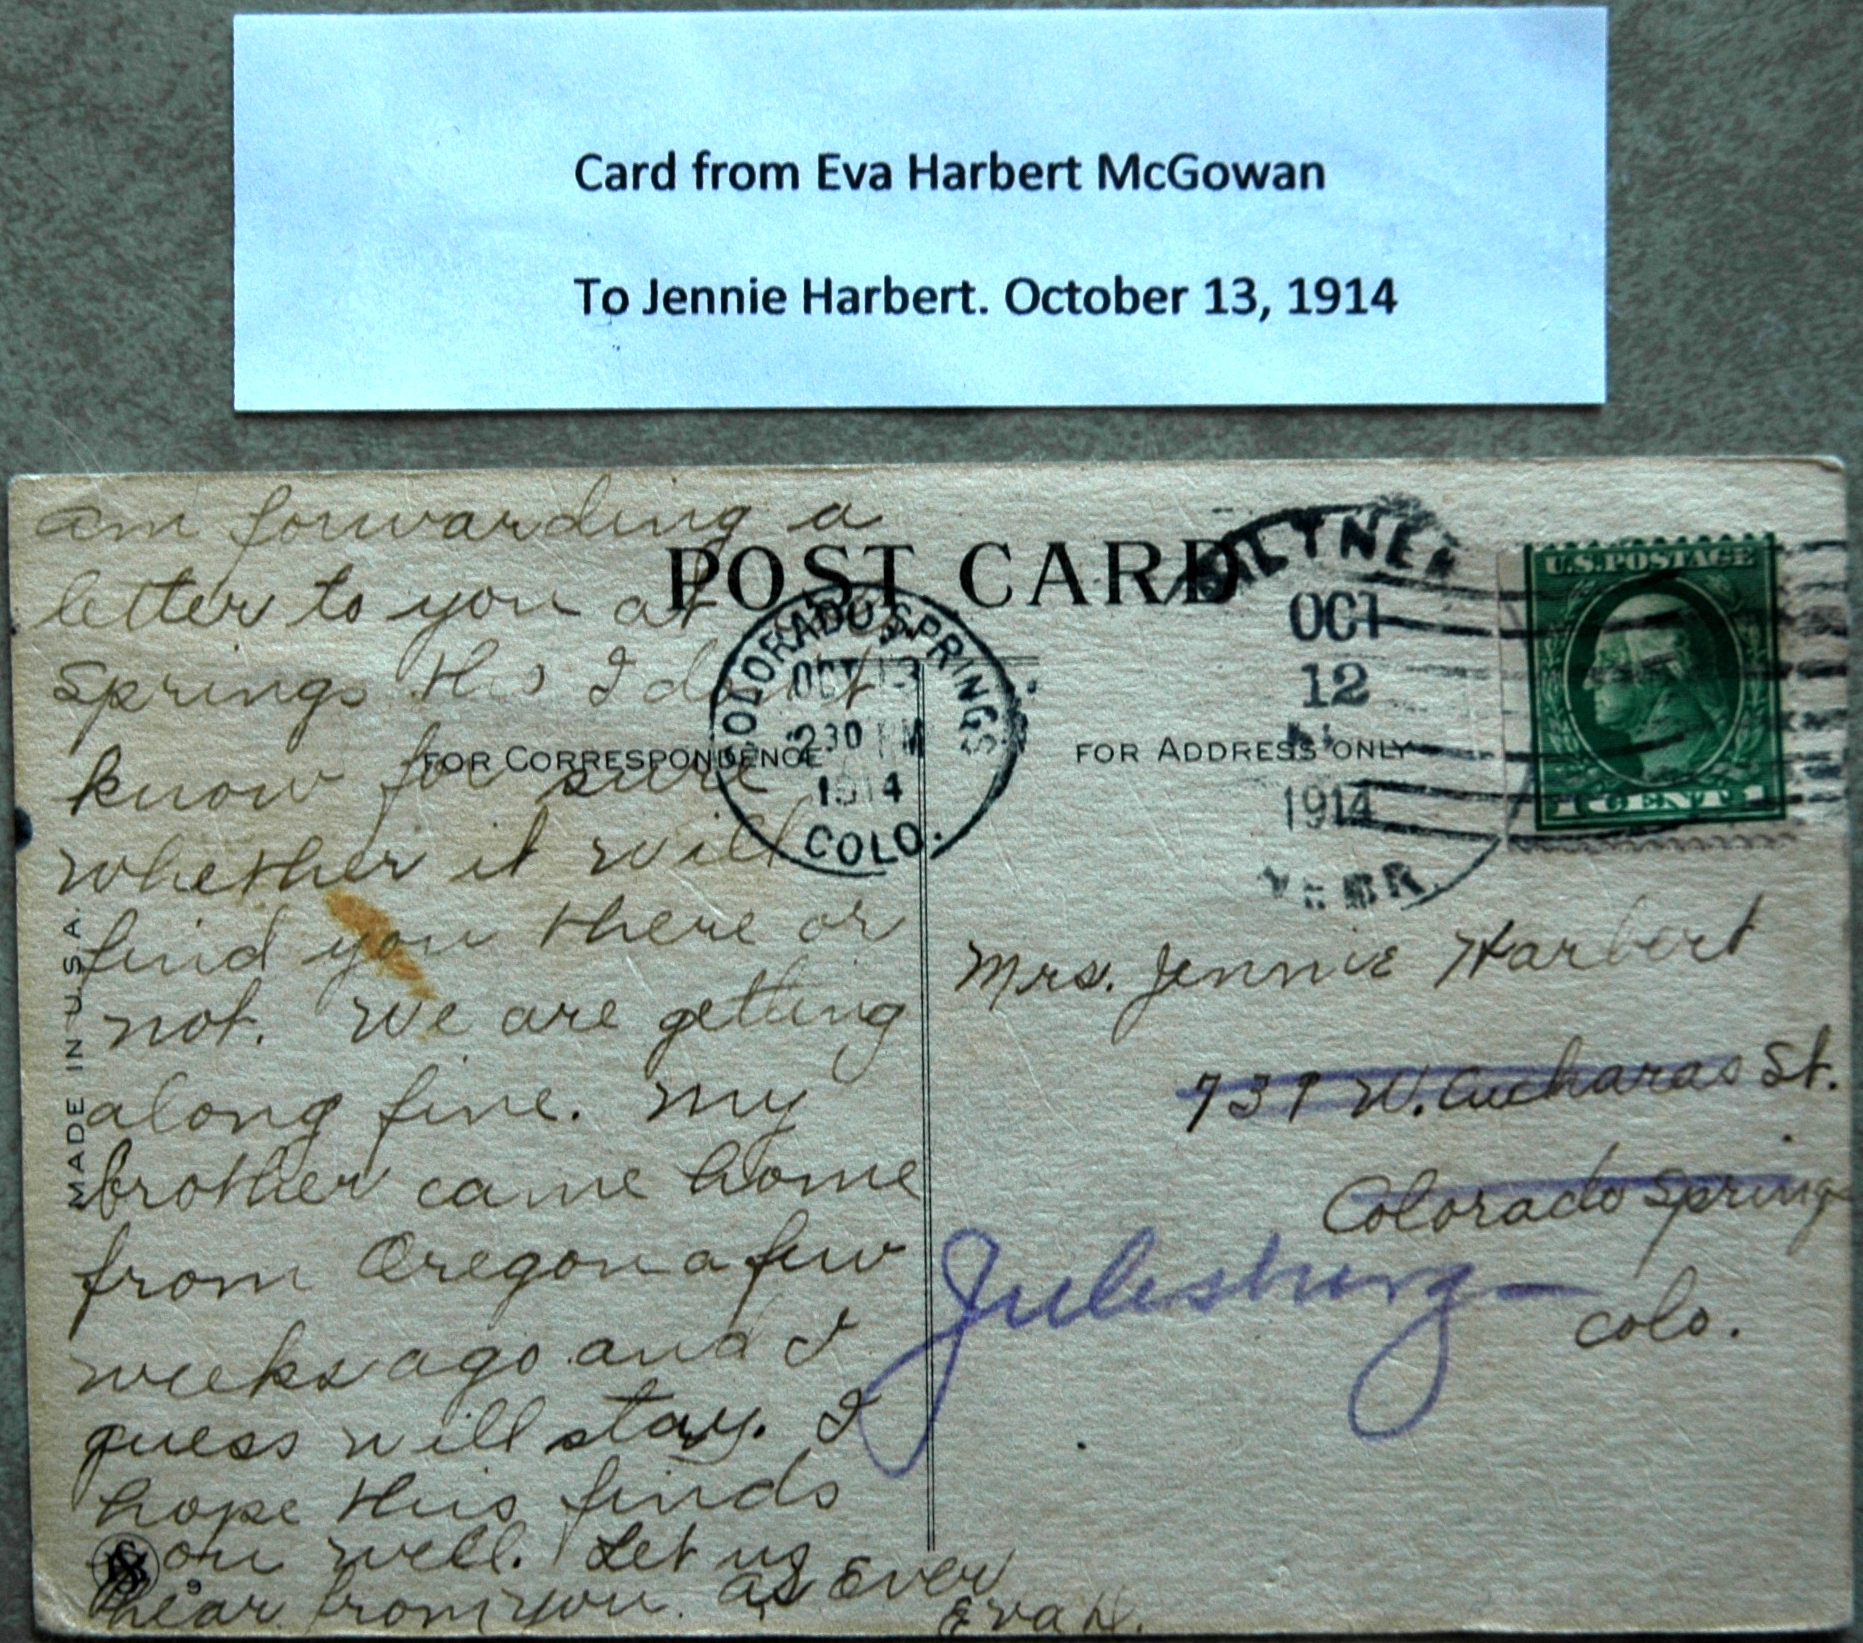 Card from Eva Harbert McGowan
To Jennie Harbert. October 13, 1914
am forwarding a
letter to you at
springs this I dont
know for sure
whether it will
find you there or
not. We are getting
along fine. My
brother came home
from Oregon a few
weeks ago and I
guess will stay. I
hope this finds
you well. Let us
hear from you. as Ever
Eva H.
POST CARD
FOR CORRESPONDENCE
FOR ADDRESS ONLY
MADE IN U.S.A.
COLORADO SPRINGS
OCT 13
230 PM
1914
COLO.
OCT
12
1914
NEBR.
U.S. POSTAGE
1 CENT 1
Mrs. Jennie Harbert
739 W. Cucharas St.
Colorado Springs
Julesburg
Colo.